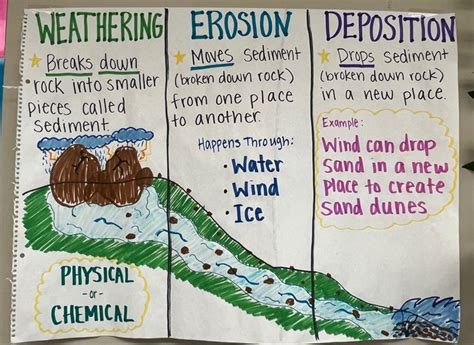 WEATHERING
Breaks down
rock into smaller
pieces called
sediment.
PHYSICAL
-or-
CHEMICAL
EROSION
Moves sediment
(broken down rock)
from one place
to another.
Happens Through:
• Water
• Wind
• Ice
DEPOSITION
Drops sediment
(broken down rock)
in a new place.
Example:
Wind can drop
sand in a new
place to create
sand dunes